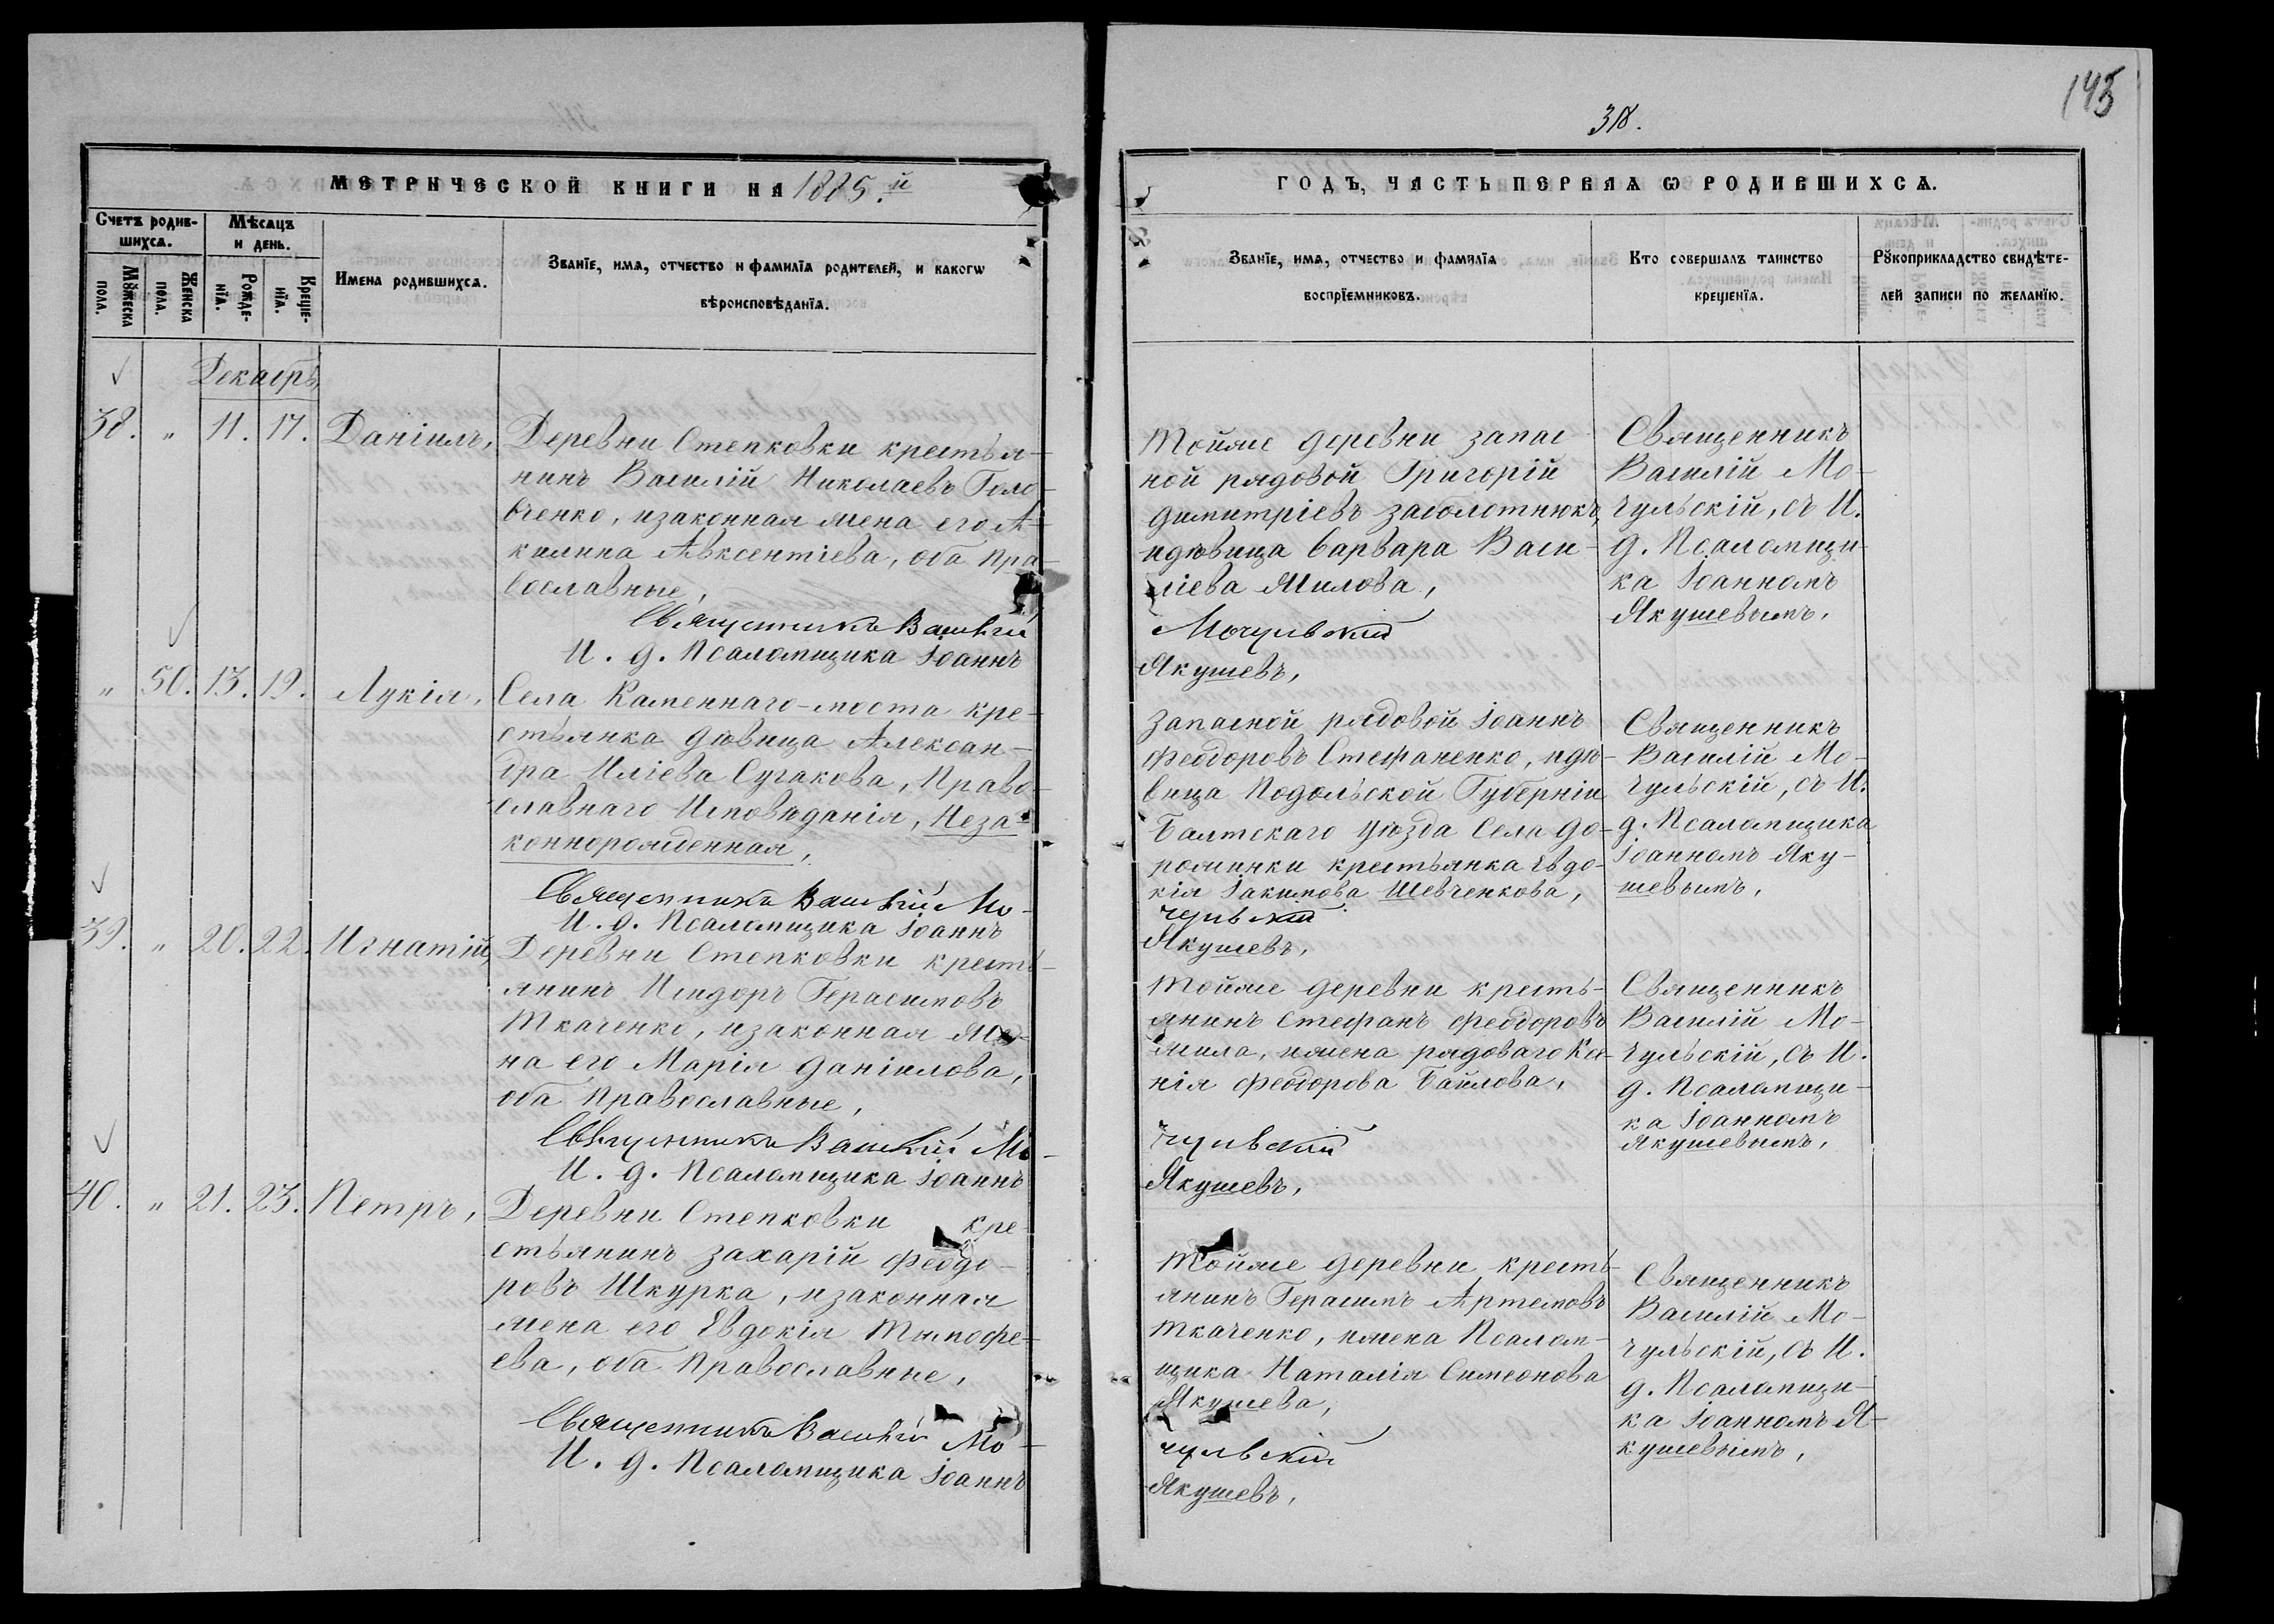 145
318.
МЕТРИЧЕСКОЙ КНИГИ НА 1885.й
ГОДЪ, ЧАСТЬ ПЕРВАѦ Ѡ РОДИВШИХСѦ.
Счетъ родив-
шихсѧ.
Мѣсѧцъ
и день.
Мꙋжеска
пола.
Женска
пола.
Рожде-
нїѧ.
Креще-
нїѧ.
Имена родившихсѧ.
Званїе, имѧ, отчество и фамилїѧ родителей, и какогѡ
вѣроисповѣданїѧ.
Званїе, имѧ, отчество и фамилїѧ
воспрїемниковъ.
Кто совершалъ таинство
крещенїѧ.
Рꙋкоприкладство свидѣте-
лей записи по желанїю.
Декабрь
38. „ 11. 17. Даніилъ,
Деревни Степковки крестья-
нинъ Василій Николаевъ Голо-
вченко, изаконная жена его А-
килина Авксентіева, оба Пра-
вославные,
Священникъ Василій
И. д. Псаломщика Іоаннъ
Тойже деревни запас
ной рядовой Григорій
Димитріевъ Заболотнюкъ,
идѣвица Варвара Васи-
ліева Милова,
Мочульскій
Якушевъ,
Священникъ
Василій Мо-
чульскій, съ И.
д. Псаломщи-
ка Іоанномъ
Якушевымъ,
„ 50. 13. 19. Лукія,
Села Каменнаго-моста кре-
стьянка дѣвица Алексан-
дра Иліева Сугакова, Право-
славнаго Исповѣданія, Неза-
коннорожденная,
Священникъ Василій Мо-
И. д. Псаломщика Іоаннъ
Запасной рядовой Іоаннъ
Феодоровъ Стефаненко, идѣ-
вица Подольской Губерніи
Балтскаго уѣзда Села До-
рожинки крестьянка Евдо-
кія Іакимова Шевченкова,
чульскій
Якушевъ,
Священникъ
Василій Мо-
чульскій, съ И.
д. Псаломщика
Іоанномъ Яку-
шевымъ,
39. „ 20. 22. Игнатій,
Деревни Степковки кресть-
янинъ Исидоръ Герасимовъ
Ткаченко, изаконная же-
на его Марія Даніилова,
оба Православные,
Священникъ Василій Мо-
И. д. Псаломщика Іоаннъ
Тойже деревни кресть-
янинъ Стефанъ Феодоровъ
ижена рядоваго Ксе-
нія Феодорова Байлова,
чульскій
Якушевъ,
Священникъ
Василій Мо-
чульскій, съ И.
д. Псаломщи-
ка Іоанномъ
Якушевымъ,
40. „ 21. 23. Петръ,
Деревни Степковки кре-
стьянинъ Захарій Феодо-
ровъ Шкурка, изаконная
жена его Евдокія Тимофе-
ева, оба Православные,
Священникъ Василій Мо-
И. д. Псаломщика Іоаннъ
Тойже деревни кресть-
янинъ Герасимъ Артемовъ
Ткаченко, ижена Псалом-
щика Наталія Симеонова
Якушева,
чульскій
Якушевъ,
Священникъ
Василій Мо-
чульскій, съ И.
д. Псаломщи-
ка Іоанномъ Я-
кушевымъ,